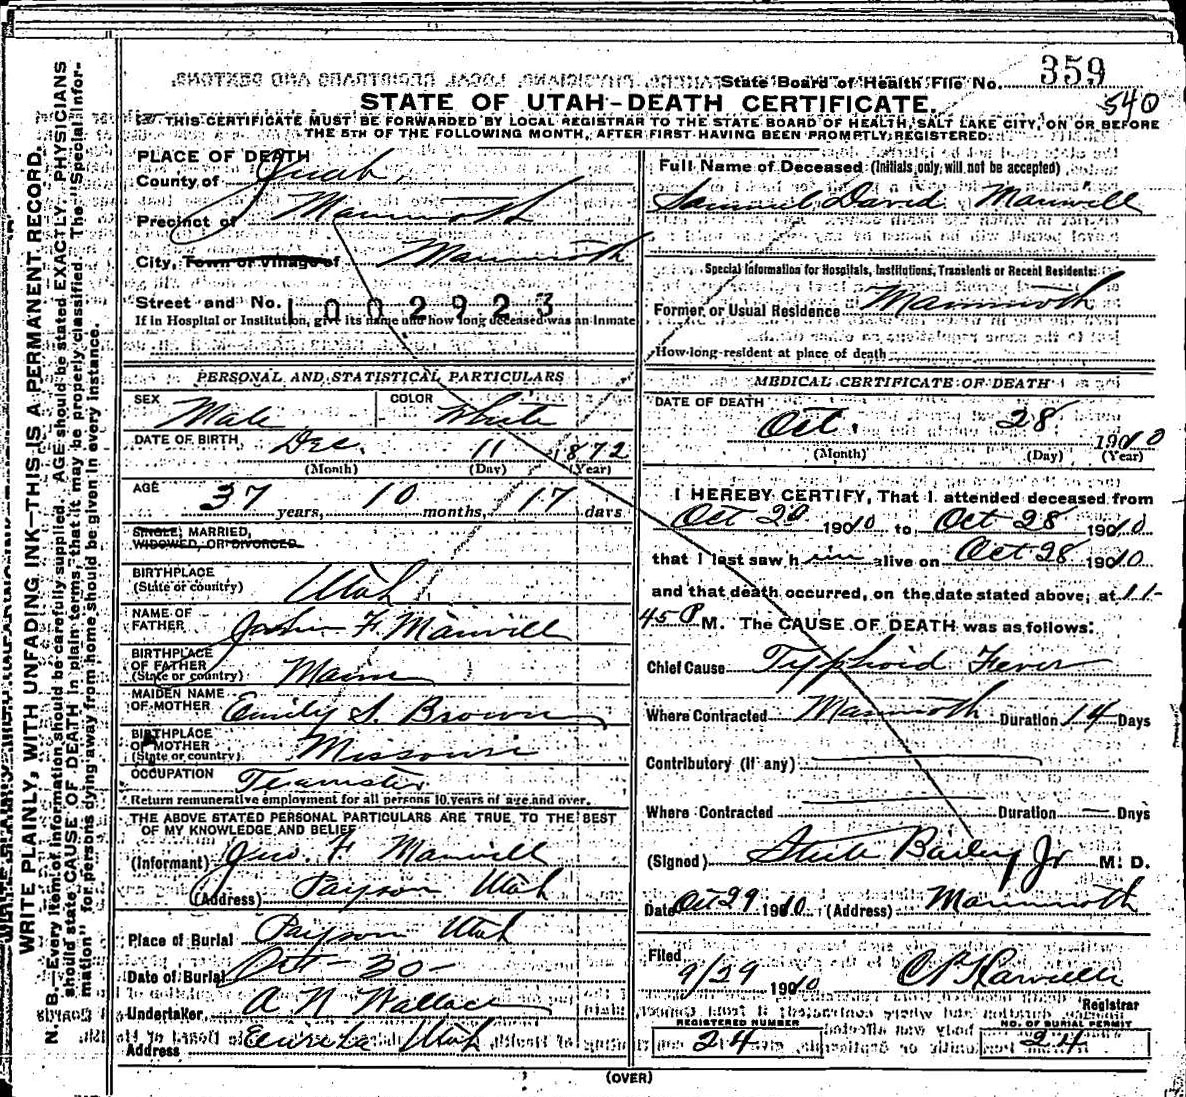 State Board of Health File No. 359
540
STATE OF UTAH-DEATH CERTIFICATE.
THIS CERTIFICATE MUST BE FORWARDED BY LOCAL REGISTRAR TO THE STATE BOARD OF HEALTH, SALT LAKE CITY, ON OR BEFORE
THE 5TH OF THE FOLLOWING MONTH, AFTER FIRST HAVING BEEN PROMPTLY REGISTERED.
WRITE PLAINLY, WITH UNFADING INK—THIS IS A PERMANENT RECORD.
N. B.—Every item of information should be carefully supplied. AGE should be stated EXACTLY. PHYSICIANS
should state CAUSE OF DEATH in plain terms, that it may be properly classified. The "Special Infor-
mation" for persons dying away from home should be given in every instance.
PLACE OF DEATH
County of Juab
Precinct of Mammoth
City, Town or Village of Mammoth
Street and No. 1002923
If in Hospital or Institution, give its name and how long deceased was an inmate
PERSONAL AND STATISTICAL PARTICULARS
SEX Male COLOR White
DATE OF BIRTH Dec. 11 1872
(Month) (Day) (Year)
AGE 37 years, 10 months, 17 days
SINGLE, MARRIED,
WIDOWED, OR DIVORCED
BIRTHPLACE
(State or country) Utah
NAME OF
FATHER F. Manwill
BIRTHPLACE
OF FATHER
(State or country) Maine
MAIDEN NAME
OF MOTHER Emily S. Brown
BIRTHPLACE
OF MOTHER
(State or country) Missouri
OCCUPATION Teamster
Return remunerative employment for all persons 10 years of age and over.
THE ABOVE STATED PERSONAL PARTICULARS ARE TRUE TO THE BEST
OF MY KNOWLEDGE AND BELIEF
(Informant) Jno. F Manwill
(Address) Payson Utah
Place of Burial Payson Utah
Date of Burial Oct - 30 -
Undertaker, A N Wallace
Address Eureka Utah
Full Name of Deceased (Initials only will not be accepted)
Samuel David Manwill
Special Information for Hospitals, Institutions, Transients or Recent Residents:
Former or Usual Residence Mammoth
How long resident at place of death
MEDICAL CERTIFICATE OF DEATH
DATE OF DEATH
Oct. 28 1910
(Month) (Day) (Year)
I HEREBY CERTIFY, That I attended deceased from
Oct 20 1910 to Oct 28 1910
that I last saw him alive on Oct 28 1910
and that death occurred, on the date stated above, at 11-
45 P M. The CAUSE OF DEATH was as follows:
Chief Cause Typphoid Fever
Where Contracted Mammoth Duration 14 Days
Contributory (if any)
Where Contracted Duration — Days
(Signed) Steele Bailey Jr M. D.
Date Oct 29 1910 (Address) Mammoth
Filed
9/29 1910
Registrar
REGISTERED NUMBER 24
NO. OF BURIAL PERMIT 24
(OVER)